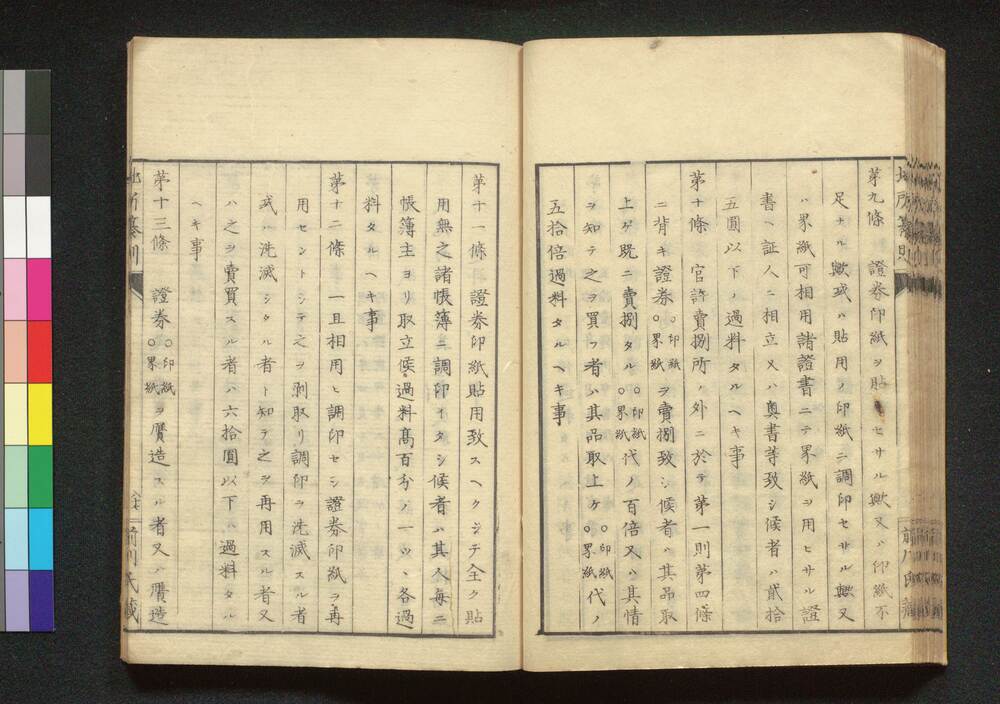 第九條 證券印紙ヲ貼セサル歟又ハ印紙不
足ナル歟或ハ貼用ノ印紙ニ調印セサル歟又
ハ界紙可相用諸證書ニテ界紙ヲ用ヒサル證
書ヘ証人ニ相立又ハ奥書等致シ候者ハ貳拾
五圓以下ノ過料タルヘキ事
第十條 官許賣捌所ノ外ニ於テ第一則第四條
ニ背キ證券○印紙○界紙ヲ賣捌致シ候者ハ其品取
上ケ既ニ賣捌タル○印紙○界紙代ノ百倍又ハ其情
ヲ知テ之ヲ買フ者ハ其品取上ケ○印紙○界紙代ノ
五拾倍過料タルヘキ事
第十一條 證券印紙貼用致スヘクシテ全ク貼
用無之諸帳簿ニ調印イタシ候者ハ其入毎ニ
帳簿主ヨリ取立候過料髙百分ノ一ツヽ各過
料タルヘキ事
第十二條 一旦相用ヒ調印セシ證券印紙ヲ再
用セントシテ之ヲ剥取リ調印ヲ洗滅スル者
或ハ洗滅シタル者ト知テ之ヲ再用スル者又
ハ之ヲ賣買スル者ハ六拾圓以下ハ過料タル
ヘキ事
第十三條 證券○印紙○界紙ヲ贋造スル者又ハ贋造
地所纂則
前川氏藏